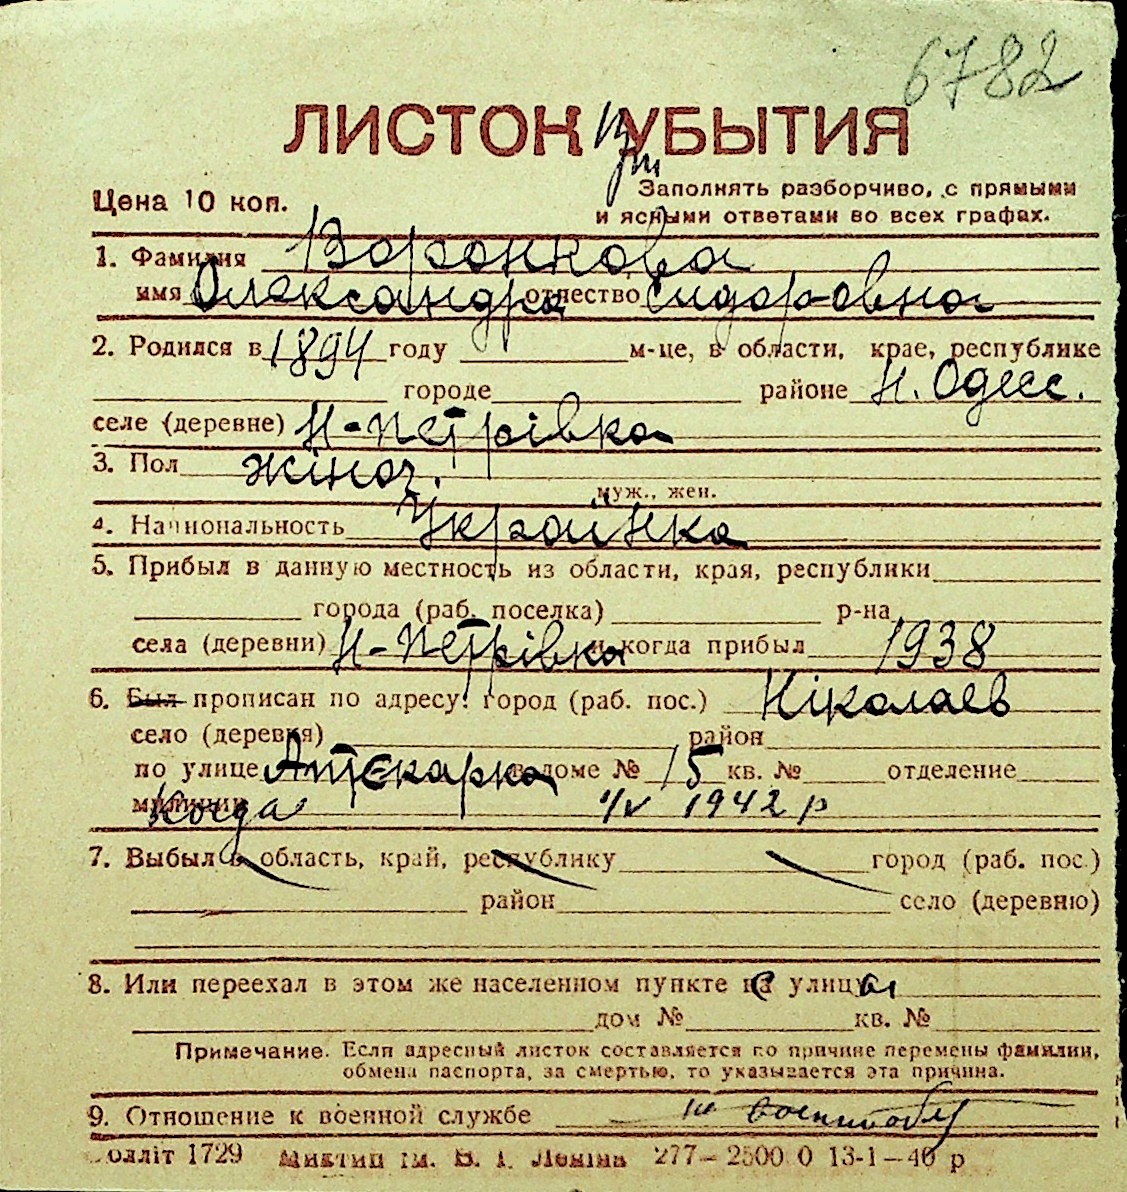 6782
ЛИСТОК УБЫТИЯ
При
Цена 10 коп.
Заполнять разборчиво, с прямыми
и ясными ответами во всех графах.
1. Фамилия Воронкова
имя Олександра отчество Сидоровна
2. Родился в 1894 году м-це, в области, крае, республике
городе районе Н. Одесс.
селе (деревне) Н-Петрівка
3. Пол жіноч.
муж., жен.
4. Национальность Українка
5. Прибыл в данную местность из области, края, республики
города (раб. поселка) р-на
села (деревни) Н-Петрівка и когда прибыл 1938
6. Был прописан по адресу: город (раб. пос.) Ніколаев
село (деревня) район
по улице Аптєкарка в доме № 15 кв. № отделение
милиции Когда 1/V 1942 р
7. Выбыл в область, край, республику город (раб. пос.)
район село (деревню)
8. Или переехал в этом же населенном пункте с улицы
дом № кв. №
Примечание. Если адресный листок составляется по причине перемены фамилии,
обмена паспорта, за смертью, то указывается эта причина.
9. Отношение к военной службе
олліт 1729 Миктип ім. В. І. Леніна 277—2500.0 13-1—40 р